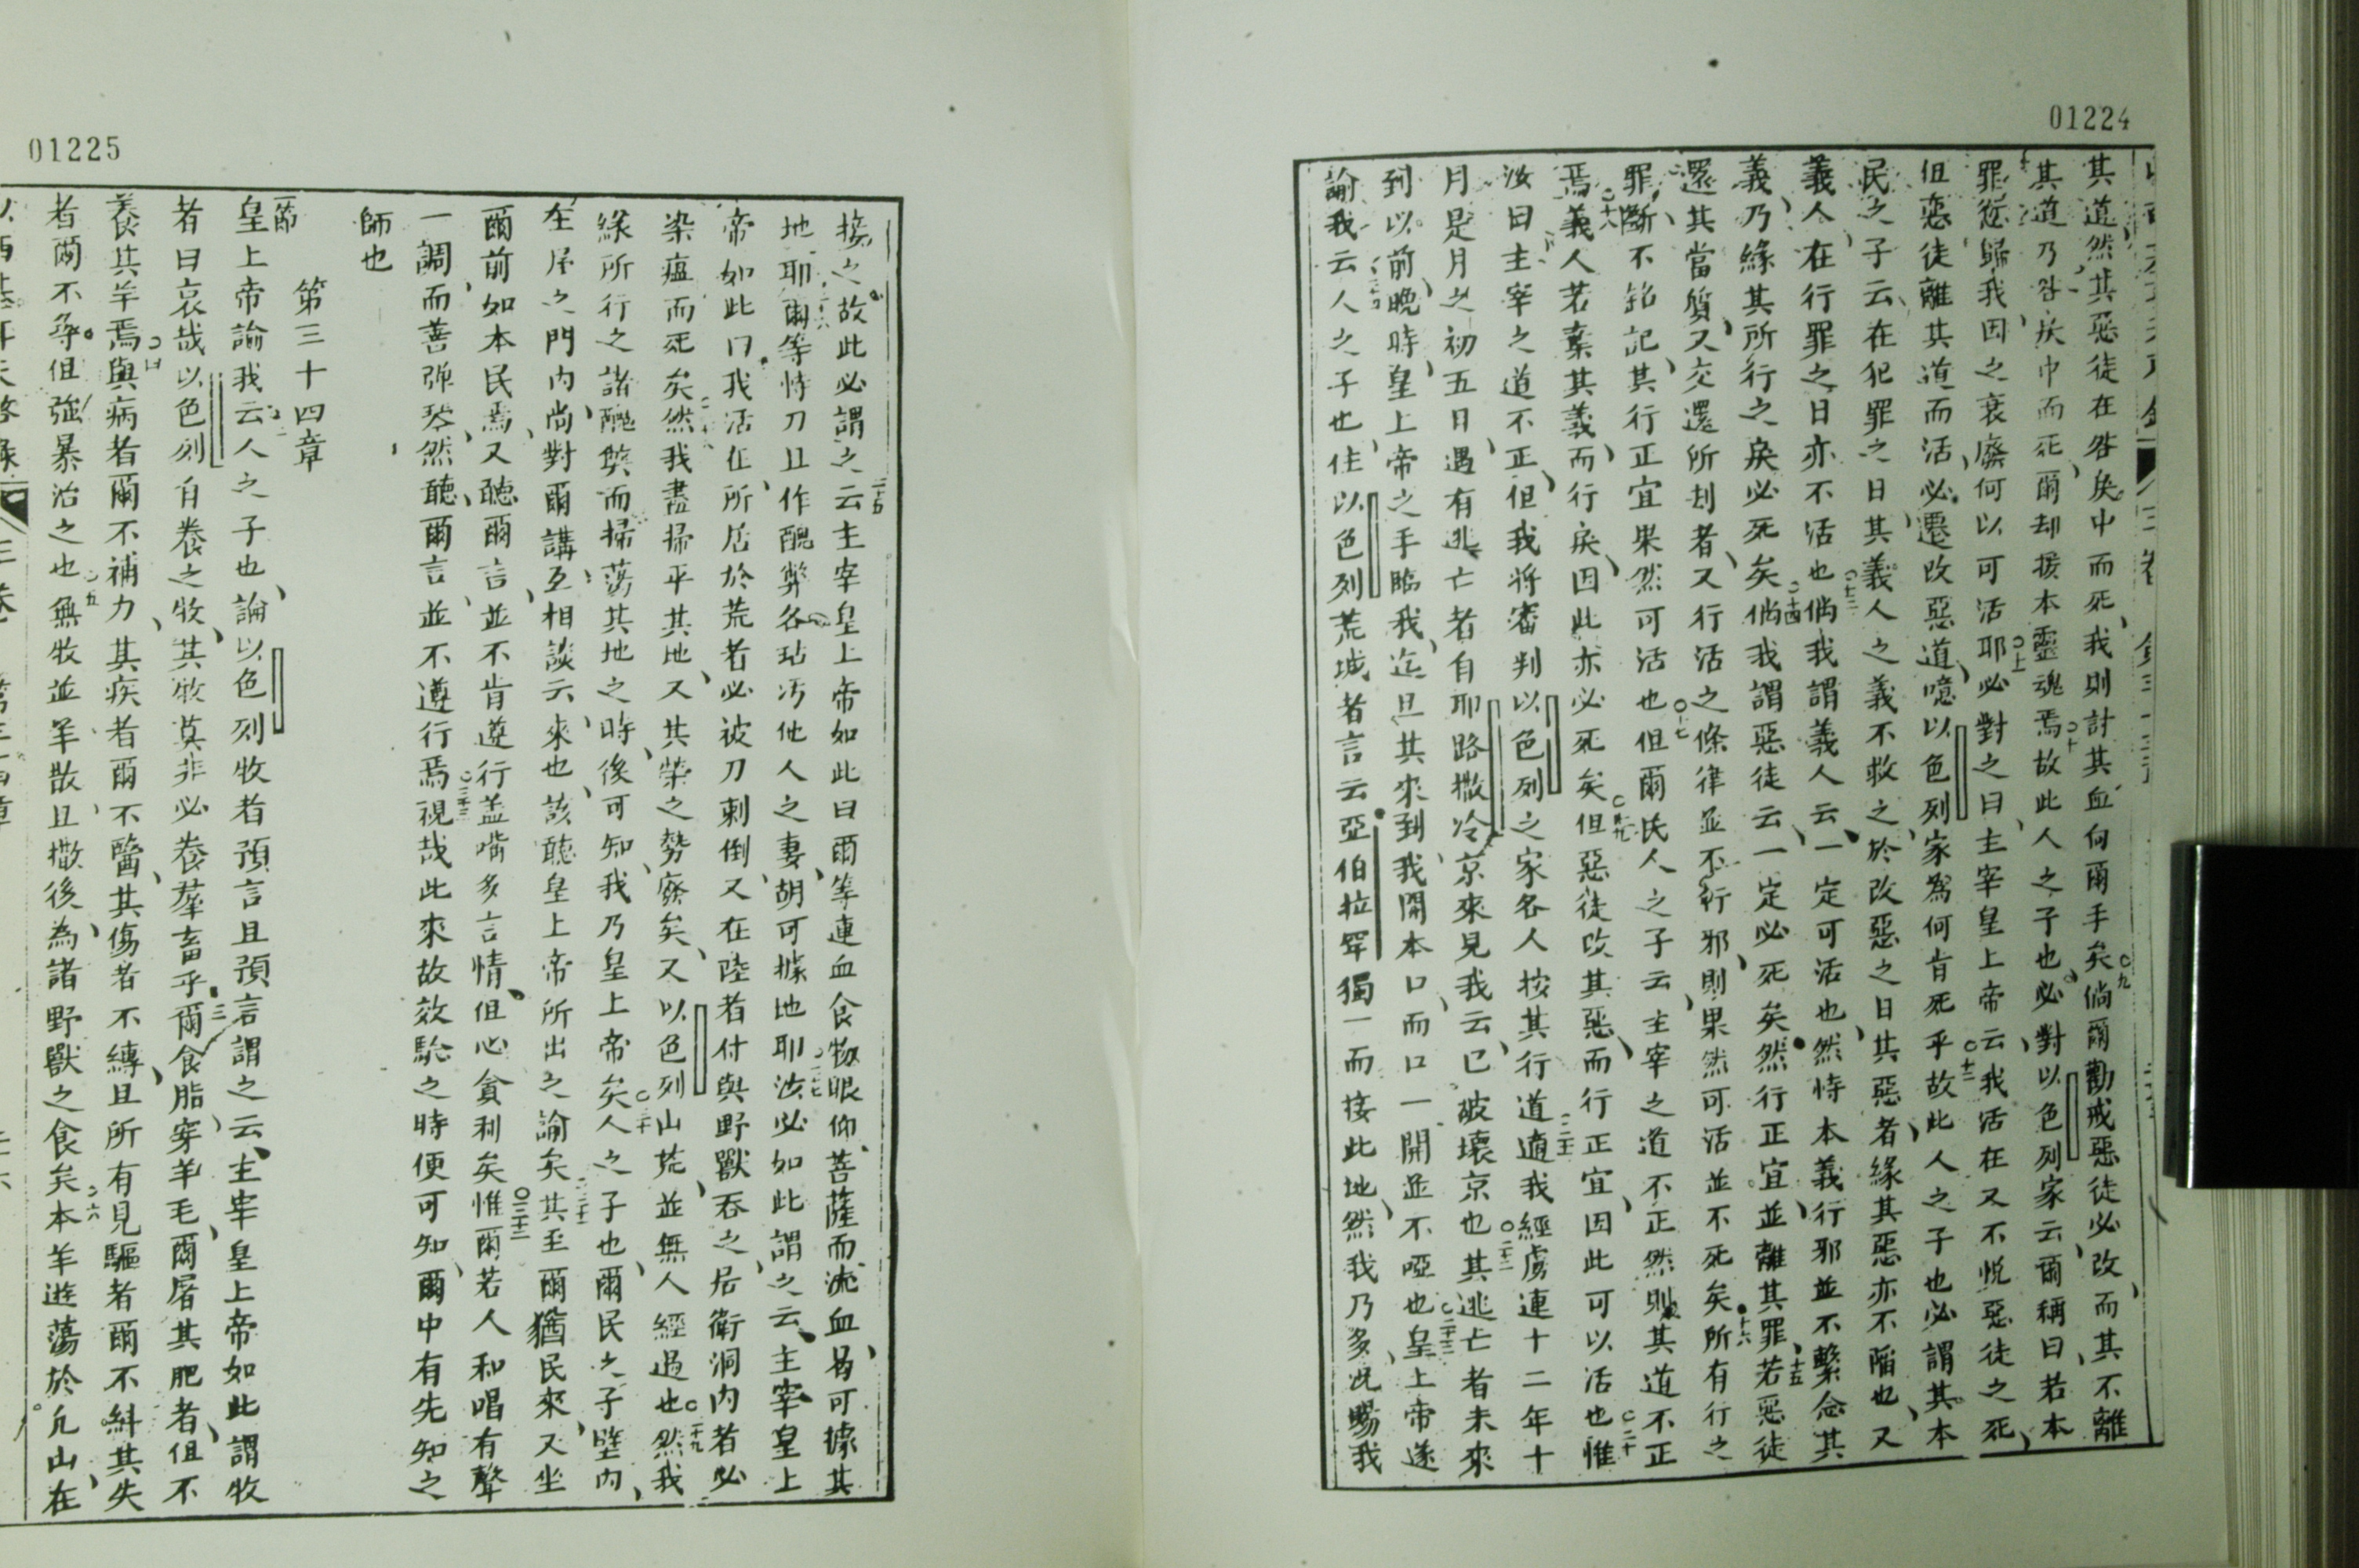 01224
其道然其惡徒在咎矣中而死我則討其血向爾手矣〇九倘爾勸戒惡徒必改而其不離
其道乃咎戾中而死爾却援本靈魂焉〇十故此人之子也必對以色列家云爾稱曰若本
罪從歸我因之衰廢何以可活耶〇十一必對之曰主宰皇上帝云我活在又不悅惡徒之死
但惡徒離其道而活必遷改惡道噫以色列家為何肯死乎〇十二故此人之子也必謂其本
民之子云在犯罪之日其義人之義不救之於改惡之日其惡者緣其惡亦不陷也又
義人在行罪之日亦不活也〇十三倘我謂義人云一定可活也然恃本義行邪並不繫念其
義乃緣其所行之戾必死矣〇十四倘我謂惡徒云一定必死矣然行正宜並離其罪十五若惡徒
還其當質又交還所刦者又行活之條律並不行邪則果然可活並不死矣十六所有行之
罪斷不銘記其行正宜果然可活也〇十七但爾民人之子云主宰之道不正然則其道不正
焉〇十八義人若棄其義而行戾因此亦必死矣〇十九但惡徒改其惡而行正宜因此可以活也〇二十惟
汝曰主宰之道不正但我將審判以色列之家各人按其行道二十一適我經虜連十二年十
月是月之初五日遇有逃亡者自耶路撒冷京來見我云已破壞京也〇二十二其逃亡者未來
到以前晚時皇上帝之手臨我迄旦其來到我開本口而口一開並不啞也〇二十三皇上帝遂
諭我云二十四人之子也住以色列荒城者言云亞伯拉罕獨一而接此地然我乃多既賜我
01225
接之故此必謂之云二十五主宰皇上帝如此曰爾等連血食物眼仰菩薩而流血曷可據其
地耶二十六爾等恃刀且作醜弊各玷污他人之妻胡可據地耶二十七汝必如此謂之云主宰皇上
帝如此曰我活在所居於荒者必被刀刺倒又在陸者付與野獸吞之居衛洞內者必
染瘟而死矣二十八然我盡掃平其地又其榮之勢廢矣又以色列山荒並無人經過也〇二十九然我
緣所行之諸醜弊而掃蕩其地之時後可知我乃皇上帝矣〇三十人之子也爾民之子壁內
在屋之門內尚對爾講互相談云來也該聽皇上帝所出之諭矣三十一其至爾猶民來又坐
爾前如本民焉又聽爾言並不肯遵行盖嘴多言情但心貪利矣〇三十二惟爾若人和唱有聲
一調而善彈琴然聽爾言並不遵行焉〇三十三視哉此來故效驗之時便可知爾中有先知之
師也
第三十四章
一節皇上帝諭我云二人之子也論以色列牧者預言且預言謂之云主宰皇上帝如此謂牧
者曰哀哉以色列自養之牧其牧莫非必養羣畜乎三爾食脂穿羊毛爾屠其肥者但不
養其羊焉〇四與病者爾不補力其疾者爾不醫其傷者不縛且所有見驅者爾不糾其失
者爾不尋但強暴治之也〇五無牧並羊散且撒後為諸野獸之食矣〇六本羊遊蕩於凢山在